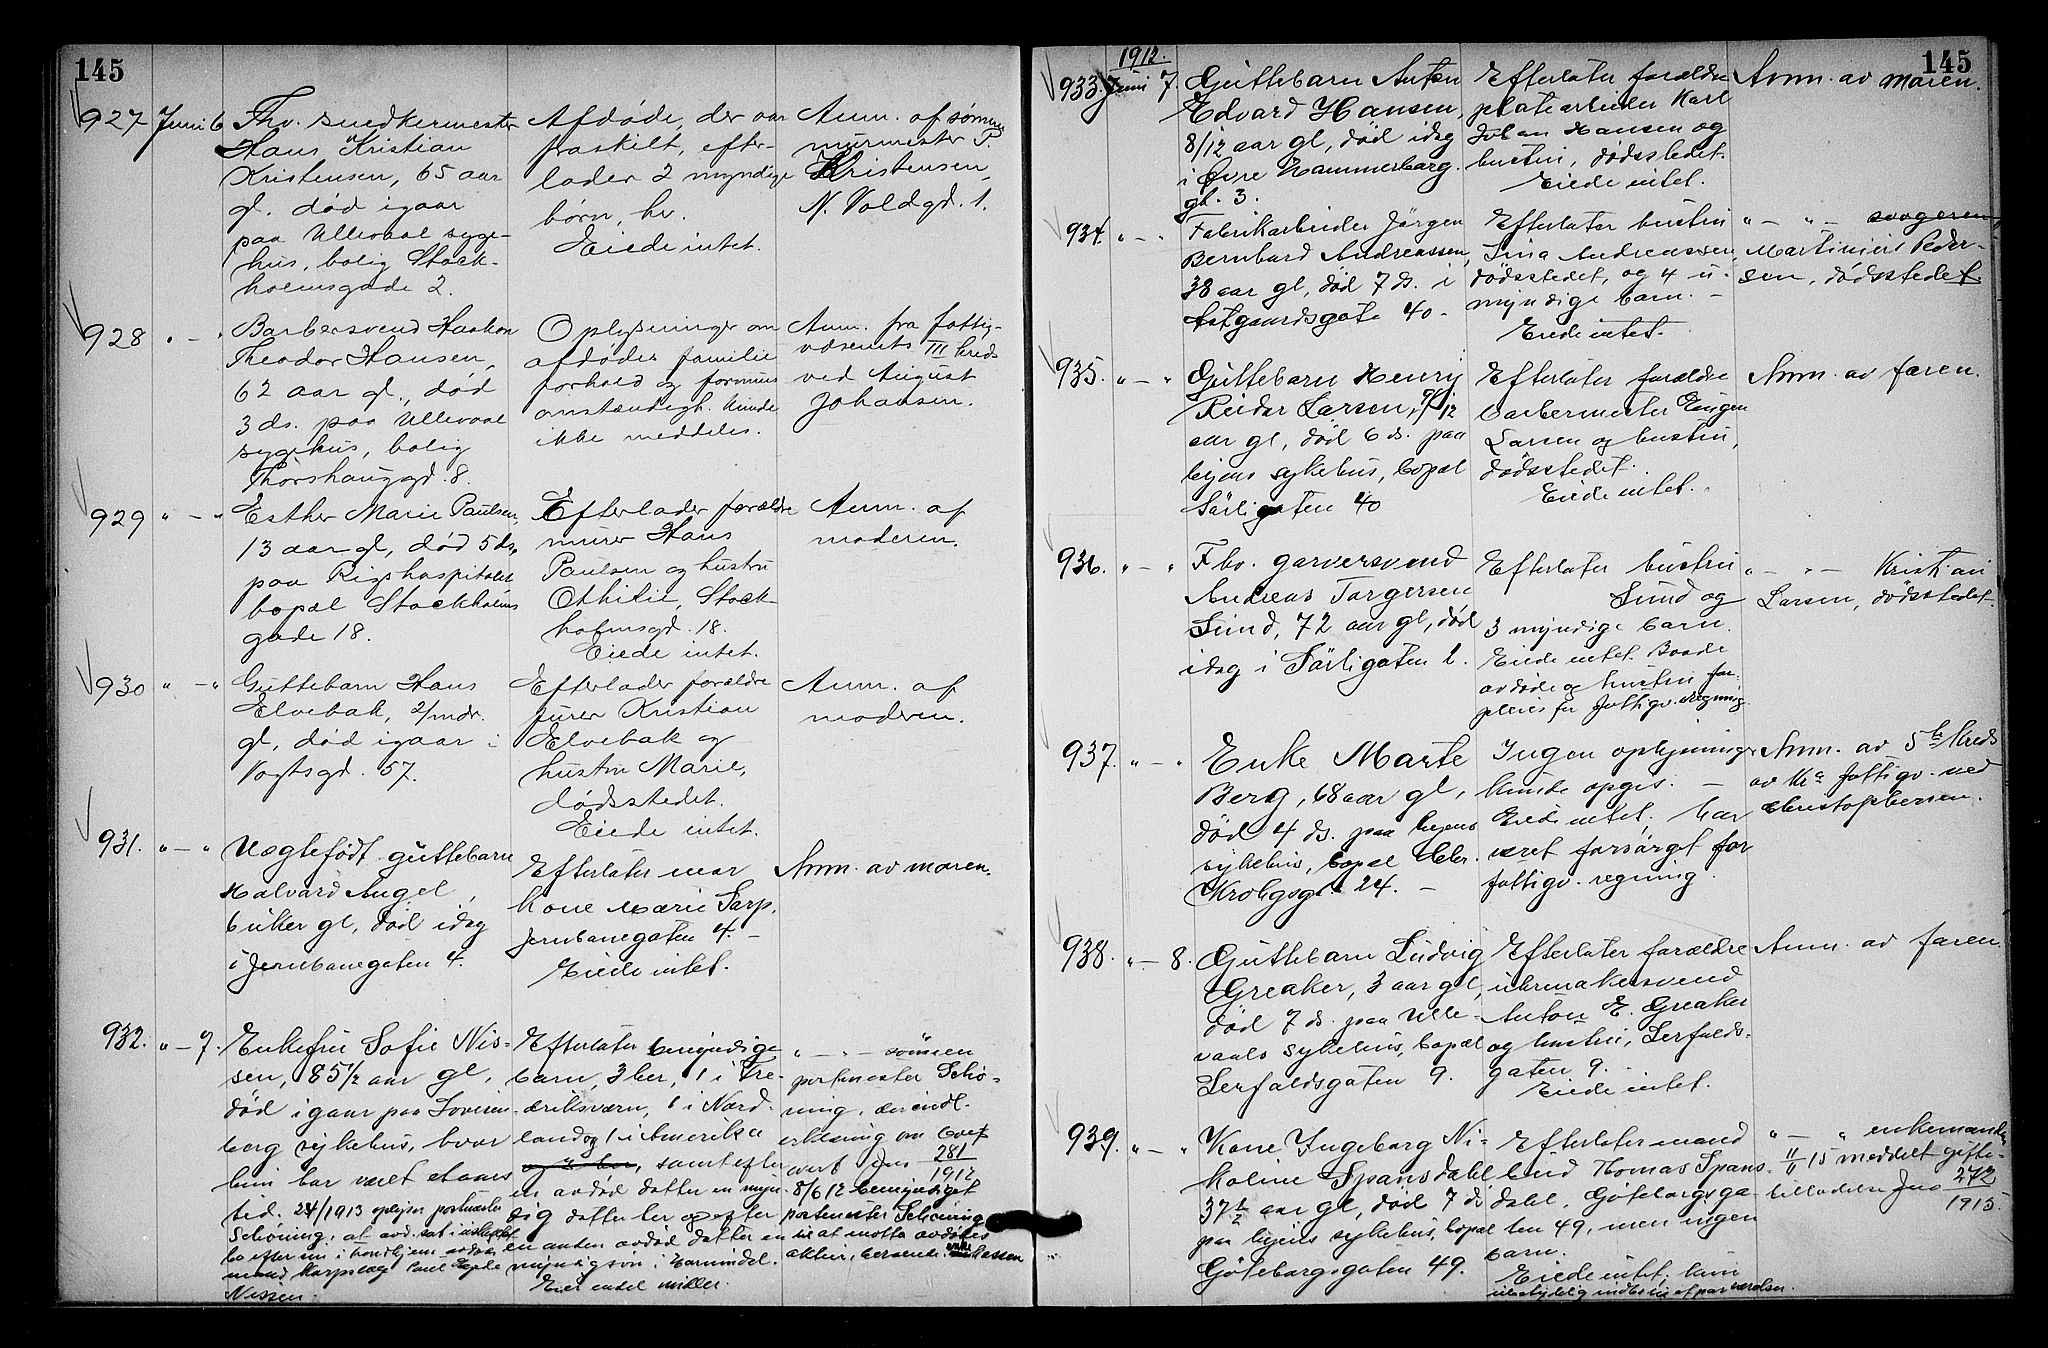 145
927 Juni 6
Fhv. snedkermester
Hans Kristian
Kristensen, 65 aar
gl. død igaar
paa Ullevaal syge-
hus, bolig Stock-
holmsgade 2.
Afdøde, der var
fraskilt, efter-
lader 2 myndige
børn, hv.
Eiede intet.
Anm. af sønnen
murmester P.
Kristensen,
N. Voldgd. 1.
928 " - "
Barbersvend Haakon
Theodor Hansen,
62 aar gl., død
3 ds. paa Ullevaal
sygehus, bolig
Thorshauggd. 8.
Oplysninger om
afdødes familie
forhold og formues
omstændigh. kunde
ikke meddeles.
Anm. fra fattig-
væsenets III kreds
ved August
Johansen.
929 " - "
Esther Marie Paulsen,
13 aar gl, død 5 ds,
paa Rigshospitalet
bopæl Stockholms
gade 18.
Efterlader forældre
murer Hans
Paulsen og hustru
Othilie, Stock-
holmsgd. 18.
Eiede intet.
Anm. af
moderen.
930 " - "
Guttebarn Hans
Elvebak, 2/mdr.
gl, død igaar i
Vogtsgd. 57.
Efterlader forældre
furer Kristian
Elvebak og
hustru Marie,
dødsstedet.
Eiede intet.
Anm. af
moderen.
931. " - "
Uægtefødt guttebarn
Halvard Angel,
6 uker gl, død idag
i Jernbanegaten 4.
Efterlater mor
kone Marie Sarp,
Jernbanegaten 4. -
Eiede intet.
Anm. av moren.
932. " - 7.
Enkefru Sofie Nis-
sen, 85 1/2 aar gl,
død igaar paa Lovisen-
berg sykehus, hvor
hun har været etpars
tid. 24/1913 oplyser portnester
Schøning, at avd. sat i uskiftet
bo efter sin i Trondhjem avdøde
mand, Korpslæge Paul
Nissen.
Efterlater 6 myndige
barn, 3 her, 1 i Fre-
driksværn, 1 i Nord-
land og 1 i Amerika
, samt efter
en avdød datter en myn
dig datter her og efter
en anden avdød datter en
myndig søn i
Eier endel midler.
" - " - sønnen
Schø-
ning, der indl.
erklæring om
Jno 281
1912
8/6 12 bemyndiget
Schøning
til at motta avdødes
aktier,
1912.
145
933. Juni 7.
Guttebarn Anton
Edvard Hansen,
8/12 aar gl, død idag
i Øvre Hammersborg
gt. 3.
Efterlater forældre
platearbeider Karl
Johan Hansen og
hustru, dødsstedet.
Eiede intet.
Anm. av moren.
934. " - "
Fabrikarbeider Jörgen
Bernhard Andreassen,
38 aar gl, død 7 ds. i
Astgaardsgate 40.
Efterlater hustru
Lina Andreassen,
dødsstedet, og 4 u-
myndige barn. -
Eiede intet.
" - " - svogeren
Martinius Peder-
sen, dødsstedet.
935. " - "
Guttebarn Henry
Reidar Larsen, 9/12
aar gl, død 6 ds. paa
byens sykehus, bopæl
Sörligaten 40
Efterlater forældre
barbermester Eugen
Larsen og hustru,
dødsstedet.
Eiede intet.
Anm. av faren.
936. " - "
Fhv. garversvend
Andreas Torgersen
Lund, 72 aar gl, død
idag i Sörligaten 2.
Efterlater hustru
Lund og
3 myndige barn.
Eiede intet. Baade
avdøde og hustru for-
pleies for fattigv. regning.
" - " - Kristian
Larsen, dødsstedet.
937. " - "
Enke Marte
Berg, 68 aar gl,
død 4 ds. paa byens
sykehus, bopæl Chr.
Krohgsgt. 24. -
Ingen oplysninger
kunde opgis. -
Eiede intet, har
været forsørget for
fattigv. regning.
Anm. av 5te kreds
av Kra fattigv. ved
Christophersen.
938. " - 8.
Guttebarn Ludvig
Greaker, 3 aar gl,
død 7 ds. paa Ulle-
vaals sykehus, bopæl
Lerfaldsgaten 9.
Efterlater forældre
urmakersvend
Anton E. Greaker
og hustru, Lerfalds-
gaten 9.
Eiede intet.
Anm. av faren.
939. " - "
Kone Ingeborg Ni-
koline Spansdahl
37 1/2 aar gl, død 7 ds
paa byens sykehus, bopæl
Göteborgsgaten 49.
Efterlater mand
Thomas Spans-
dahl, Göteborgsga-
ten 49, men ingen
barn.
Eiede intet, kun
ubetydelig indbo
" - " enkemanden
11/11 15 meddelt gifte-
tilladelse Jno 272
1915.